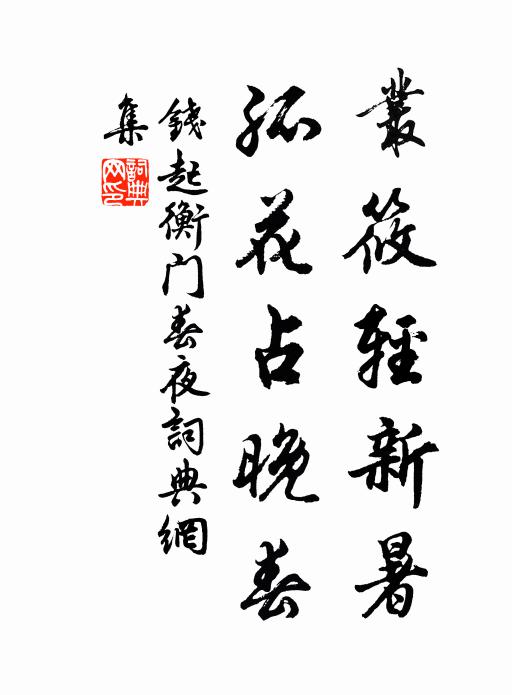 叢筱輕新暑
孤花占晚春
錢起衡门春夜詞典網
集
詞典
网印